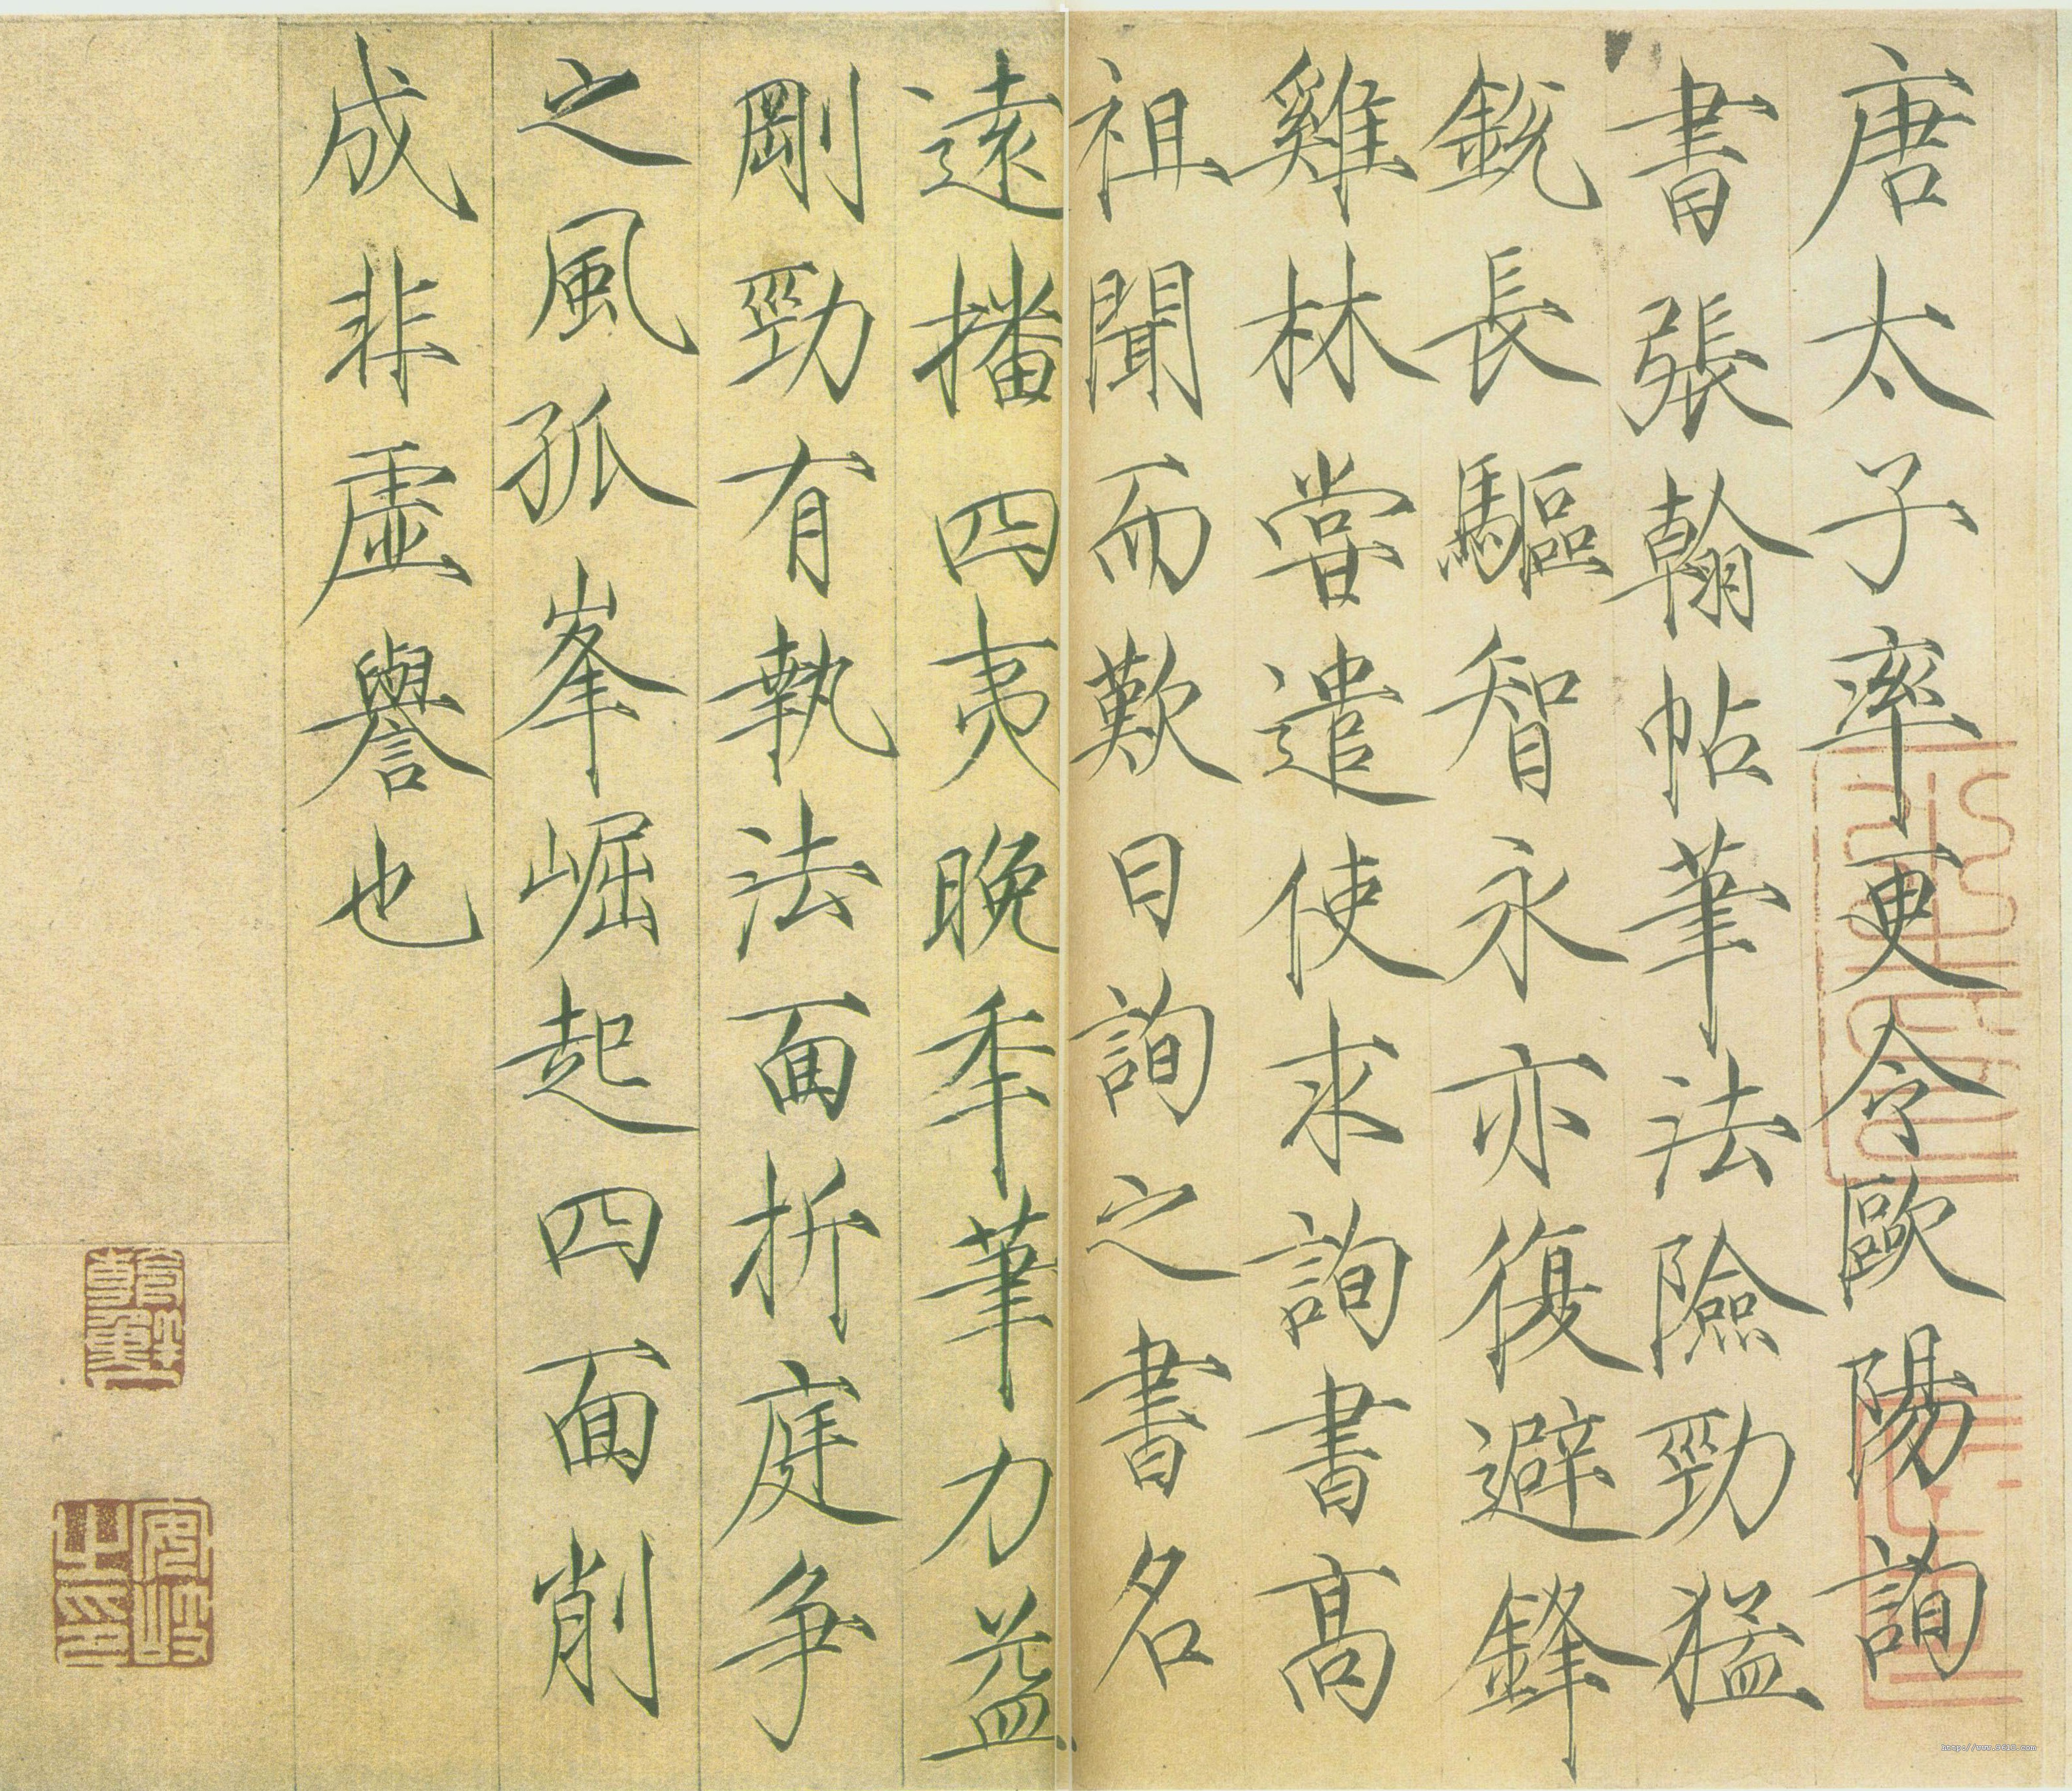 唐太子率更令歐陽詢
書張翰帖筆法險勁猛
銳長驅智永亦復避鋒
雞林嘗遣使求詢書高
祖聞而歎曰詢之書名
遠播四夷晚年筆力益
剛勁有執法面折庭爭
之風孤峯崛起四面削
成非虛譽也